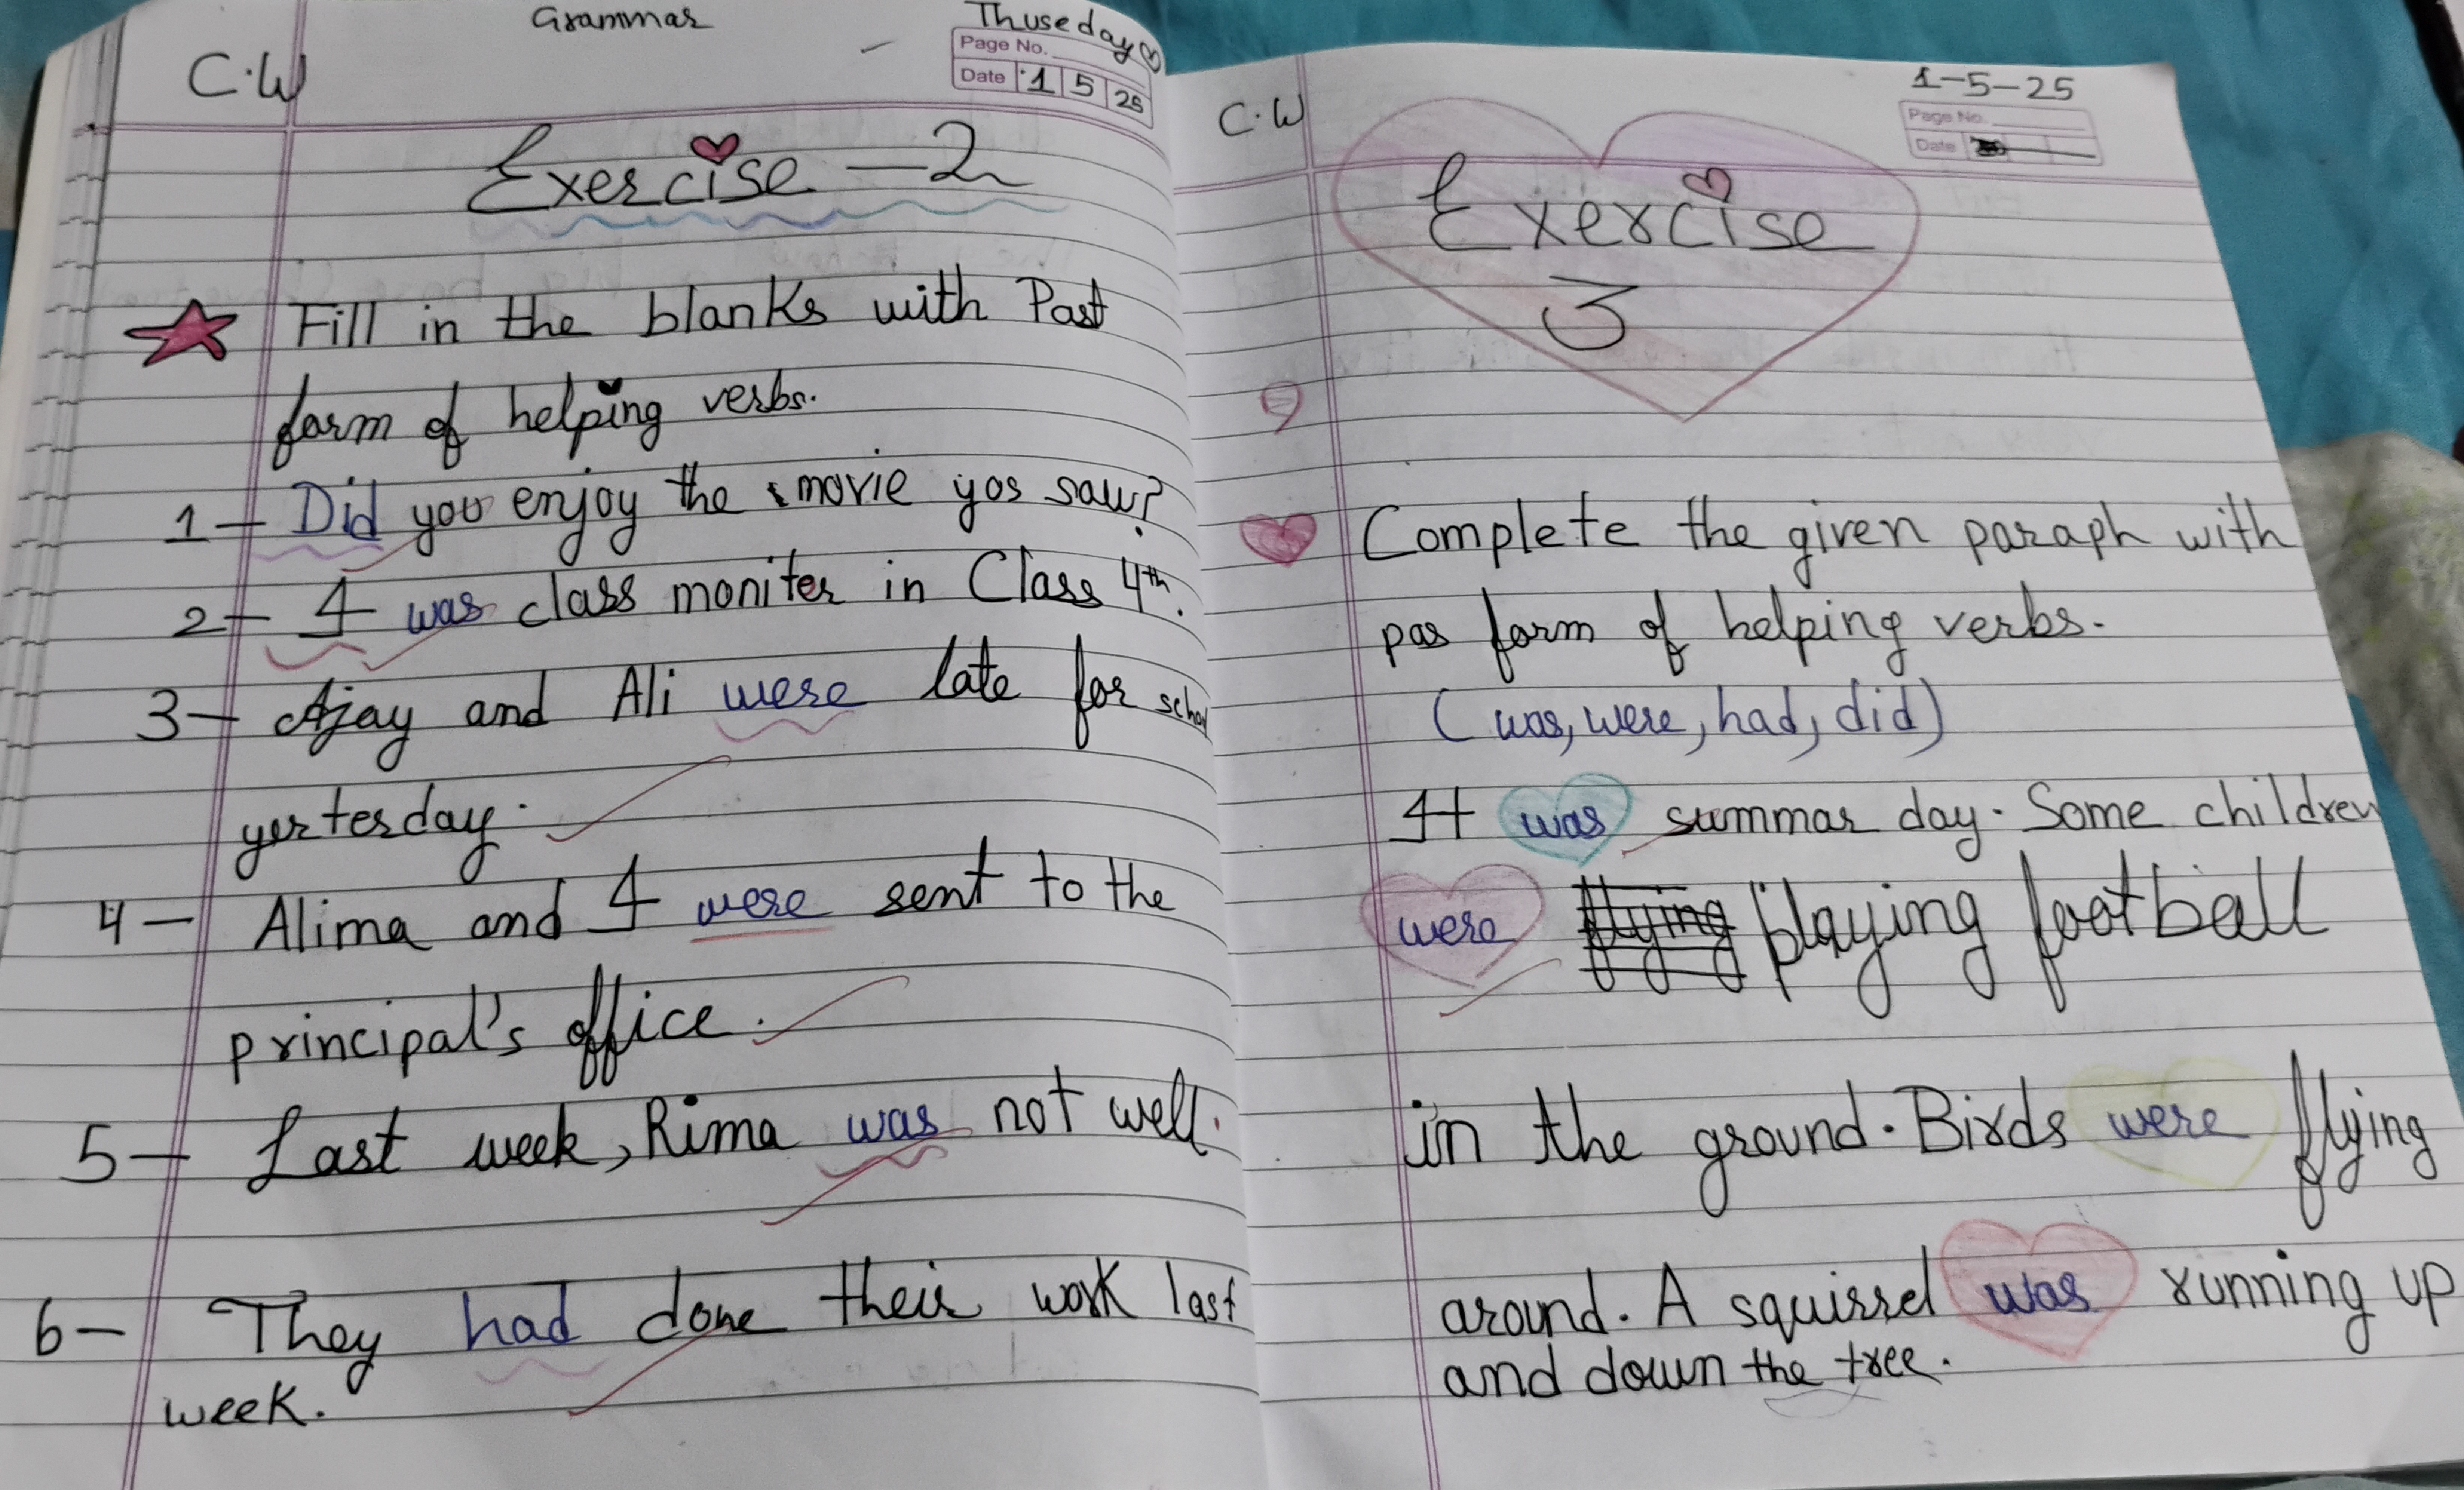 Grammar
Thuseday
C.W
Page No.
Date 1 5 25
Exercise - 2
Fill in the blanks with Past
form of helping verbs.
1- Did you enjoy the movie yos saw?
2- I was class moniter in Class 4th.
3- Ajay and Ali were late for school
yesterday.
4- Alima and I were sent to the
principal's office.
5- Last week, Rima was not well.
6- They had done their work last
week.
1-5-25
C.W
Page No.
Date
Exercise
3
Complete the given paraph with
pas form of helping verbs.
(was, were, had, did)
It was summar day. Some children
were flying playing football
in the ground. Birds were flying
around. A squirrel was running up
and down the tree.